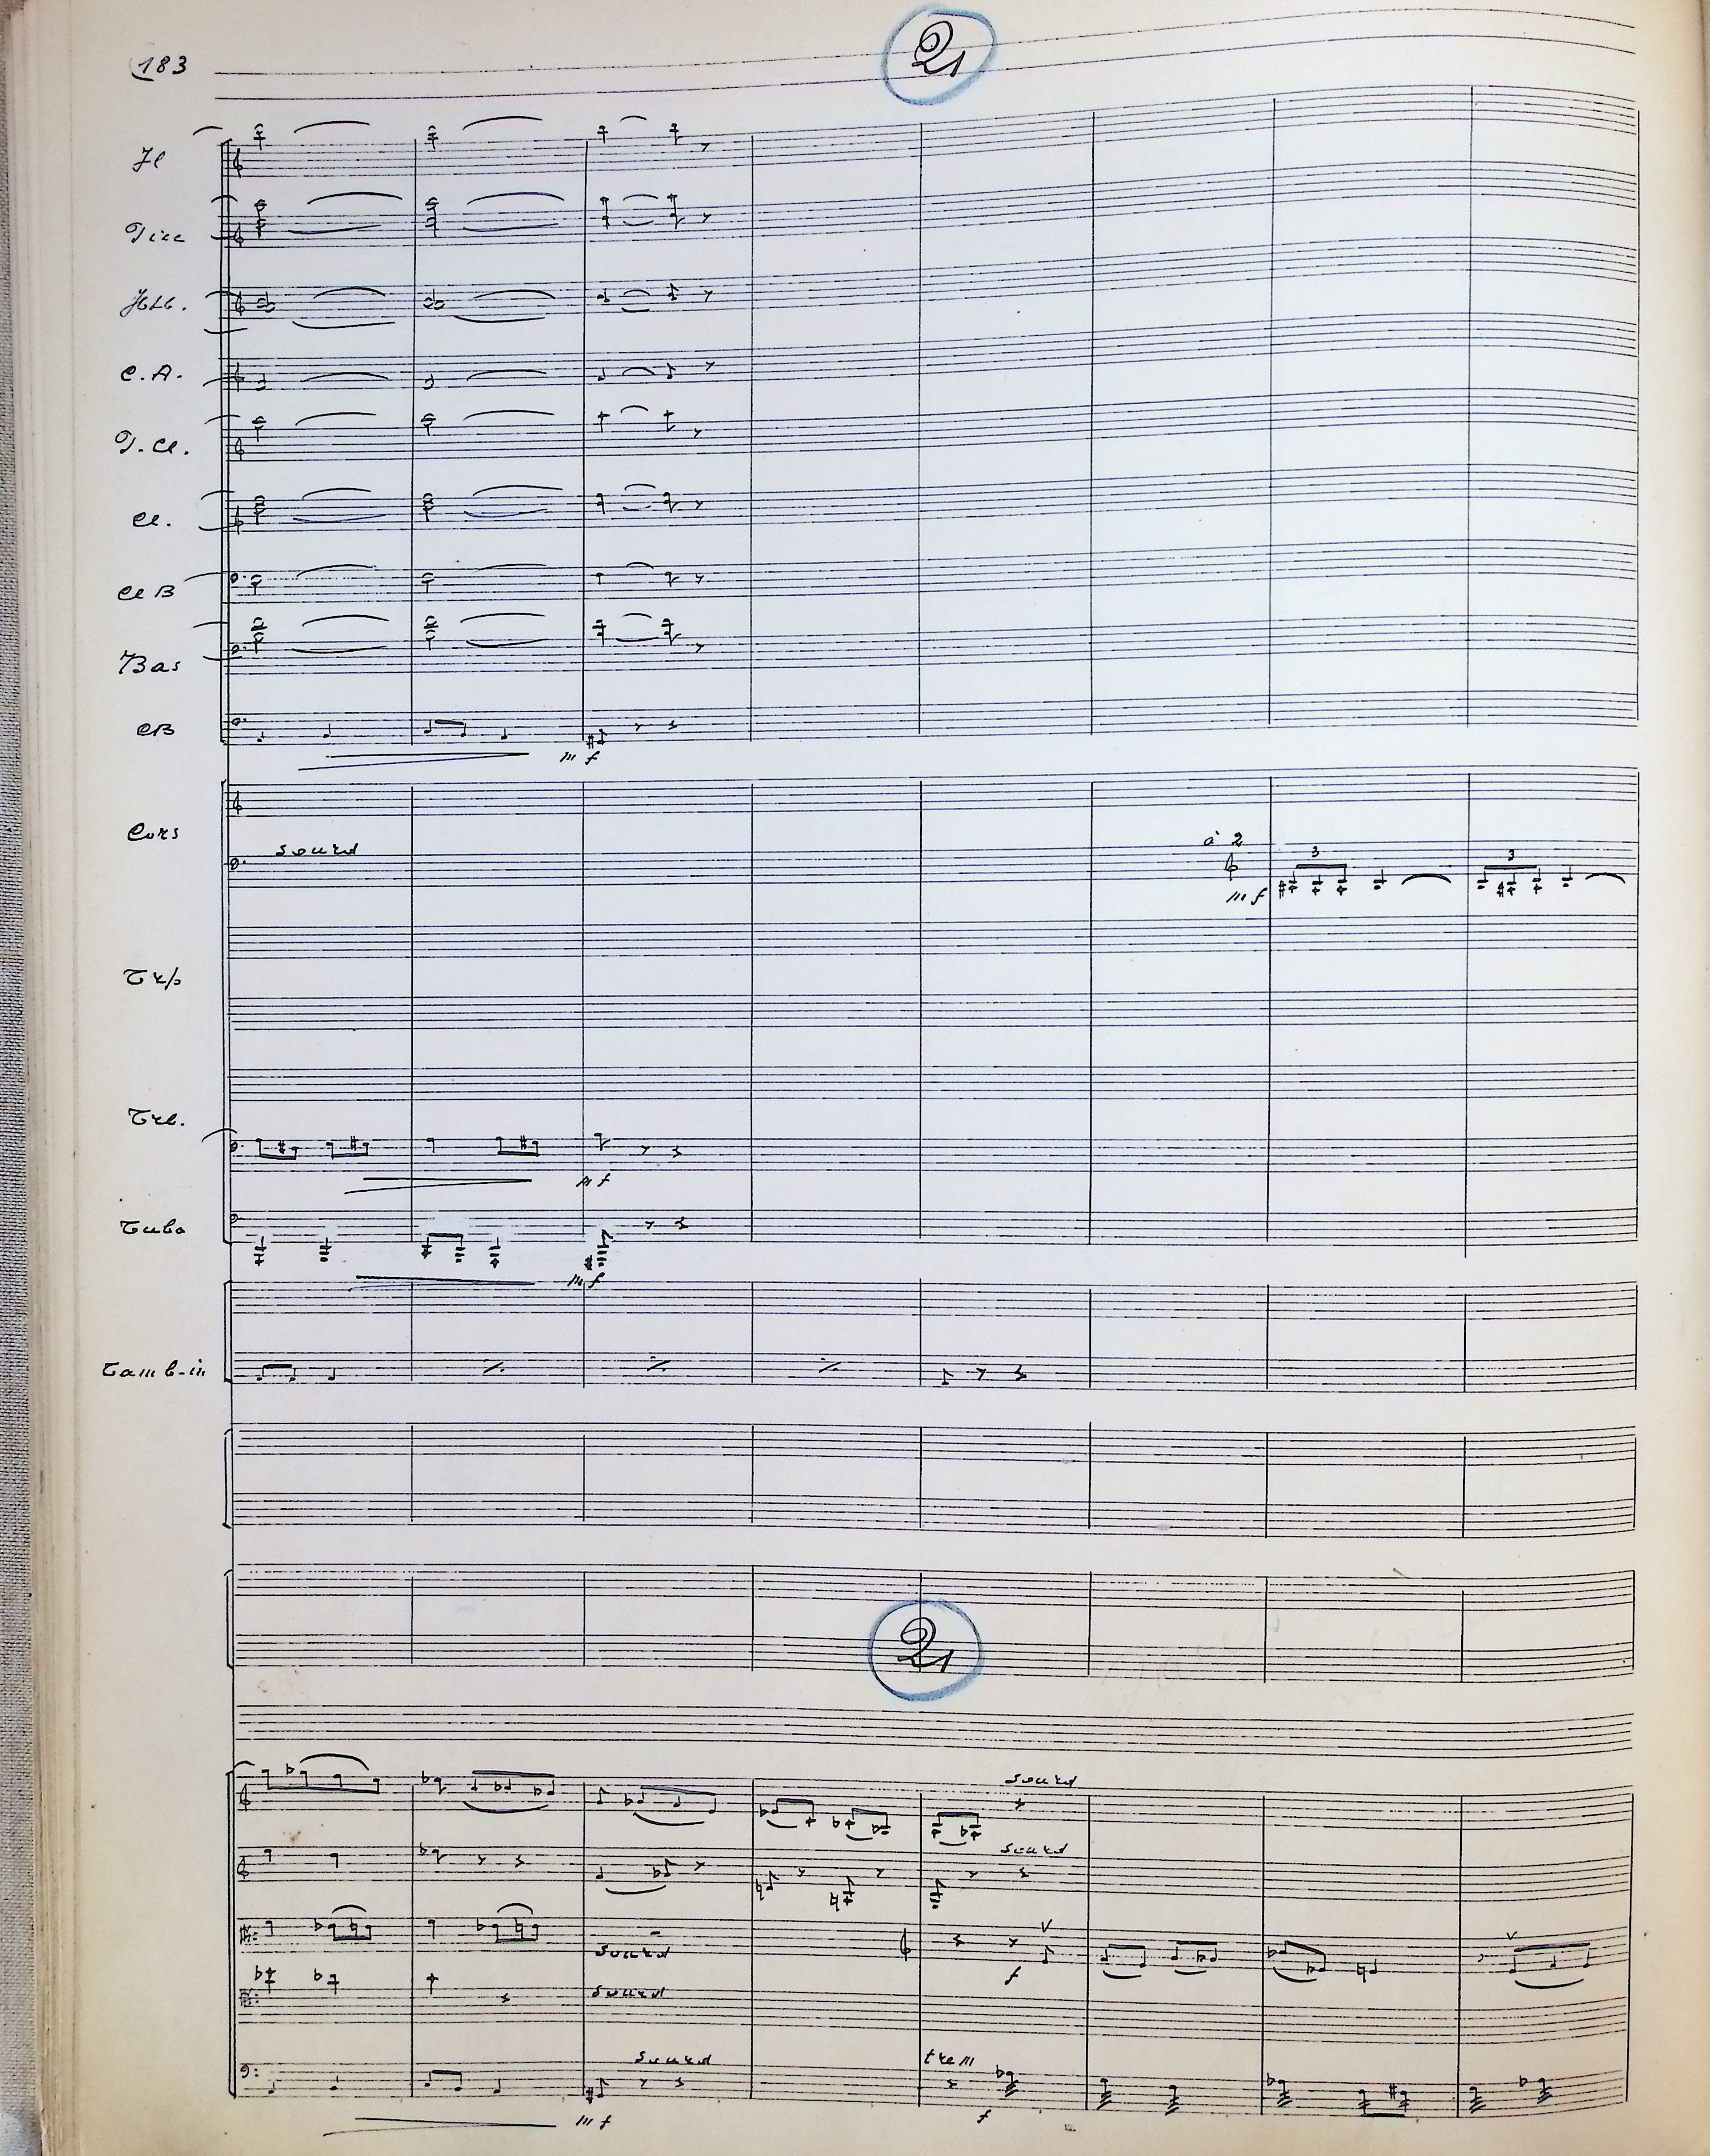 183
21
Fl
Picc
Htb.
C.A.
P.Cl.
Cl.
Cl B
Bas
CB
m f
Cors
sourd
à 2
m f
3
3
Trp
Trb.
m f
Tuba
m f
Tamb-in
21
sourd
sourd
sourd
V
V
f
sourd
sourd
trem
m f
f